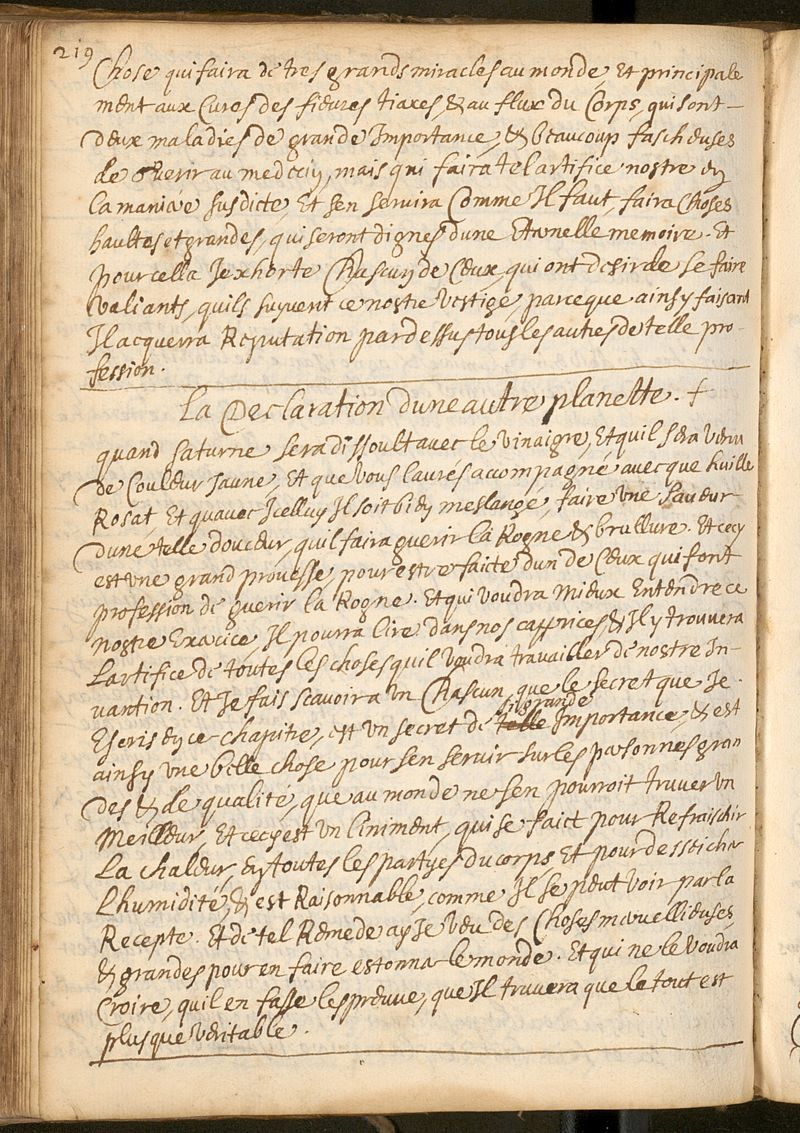 219
Chose qui faira de tres grands miracles au monde, Et principale
ment aux Cures des fieures tiaxes, & au flux du Corps, qui sont –
deux maladies de grande Importance, & beaucoup fascheuses
de Guerir au medecin, mais qui faira tel artifice nostre en
La maniere susdicte, Et sen servira Comme Il faut, faira Choses
haultes et grandes, qui seront dignes dune Eternelle memoire. Et
pour cella Jexhorte Chascun de Ceux, qui ont desir de se faire
Valiants, quils suyuent ce nostre Vestige, parce que ainsy faisant
Il acquerra Reputation par dessus tous les autres de telle pro-
fession.
La Declaration dune autre planette. +
quand saturne sera dissoult avec le vinaigre, Et quil sera venu
de Couleur Jaune, Et que vous laures accompagné avecque huille
Rosat, Et quavec Jcelluy Il soit bien meslangé, faire une saueur
dune telle douceur, quil faira guerir la Rogne & brullure. Et cecy
est une grand prouesse, pour estre faicte dun de Ceux qui font
profession de guerir la Rogne. Et qui voudra mieux Entendre ce
nostre Exercice, Il pourra lire dans nos capprices, & Il y trouvera
Lartifice de toutes les choses quil voudra travailler de nostre In-
vantion. Et Je fais scavoir a un Chascun, que le secret que Je
Escris en ce chapitre, est un secret de telle si grande Importance, & est
ainsy une belle chose pour sen servir sur les personnes gran
des & de qualité, que au monde ne sen pourroit truver un
Meilleur, Et cecy est un liniment, qui se faict pour Refraischir
La chaleur, en toutes les partyes du corps Et pour desseicher
Lhumidité, & est Raisonnable, comme Il se peut voir par la
Recepte. Et de tel Remede ay Je veu des Choses mervellieuses,
& grandes pour en faire estonner le monde. Et qui ne le voudra
Croire, quil en fasse lespreuve, que Il truvera que le tout est
plus que veritable.